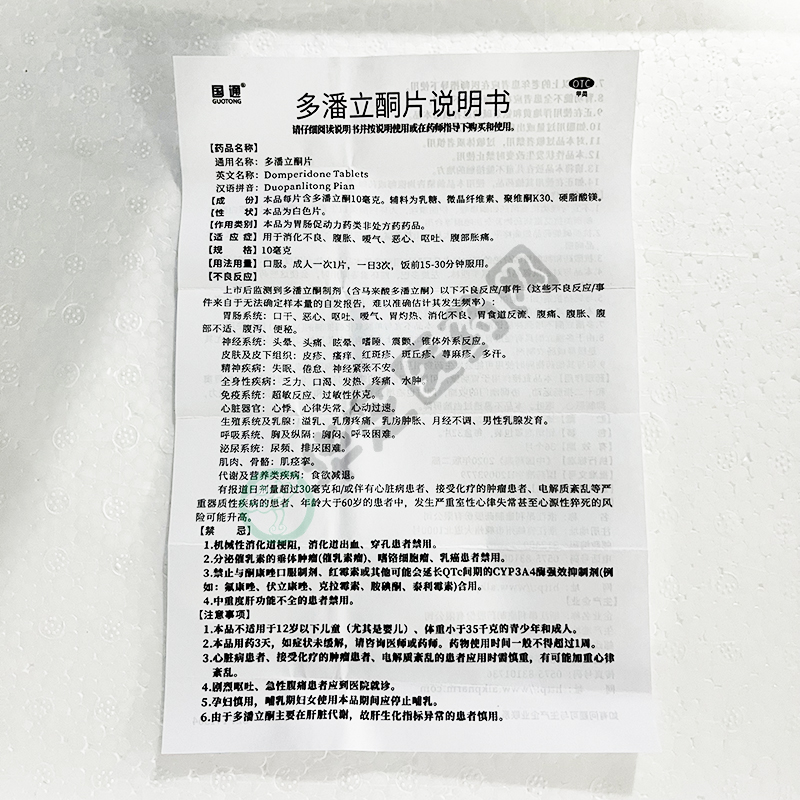 国通®
GUOTONG
OTC
甲类
多潘立酮片说明书
请仔细阅读说明书并按说明使用或在药师指导下购买和使用。
【药品名称】
通用名称：多潘立酮片
英文名称：Domperidone Tablets
汉语拼音：Duopanlitong Pian
【成　份】本品每片含多潘立酮10毫克。辅料为乳糖、微晶纤维素、聚维酮K30、硬脂酸镁。
【性　状】本品为白色片。
【作用类别】本品为胃肠促动力药类非处方药药品。
【适 应 症】用于消化不良、腹胀、嗳气、恶心、呕吐、腹部胀痛。
【规　格】10毫克
【用法用量】口服。成人一次1片，一日3次，饭前15-30分钟服用。
【不良反应】
上市后监测到多潘立酮制剂（含马来酸多潘立酮）以下不良反应/事件（这些不良反应/事
件来自于无法确定样本量的自发报告，难以准确估计其发生频率）：
胃肠系统：口干、恶心、呕吐、嗳气、胃灼热、消化不良、胃食道反流、腹痛、腹胀、腹
部不适、腹泻、便秘。
神经系统：头晕、头痛、眩晕、嗜睡、震颤、锥体外系反应。
皮肤及皮下组织：皮疹、瘙痒、红斑疹、斑丘疹、荨麻疹、多汗。
精神疾病：失眠、倦怠、神经紧张不安。
全身性疾病：乏力、口渴、发热、疼痛、水肿
免疫系统：超敏反应、过敏性休克。
心脏器官：心悸、心律失常、心动过速。
生殖系统及乳腺：溢乳、乳房疼痛、乳房肿胀、月经不调、男性乳腺发育。
呼吸系统、胸及纵隔：胸闷、呼吸困难。
泌尿系统：尿频、排尿困难。
肌肉、骨骼：肌痉挛。
代谢及营养类疾病：食欲减退。
有报道日剂量超过30毫克和/或伴有心脏病患者、接受化疗的肿瘤患者、电解质紊乱等严
重器质性疾病的患者、年龄大于60岁的患者中，发生严重室性心律失常甚至心源性猝死的风
险可能升高。
【禁　忌】
1.机械性消化道梗阻，消化道出血、穿孔患者禁用。
2.分泌催乳素的垂体肿瘤(催乳素瘤)、嗜铬细胞瘤、乳癌患者禁用。
3.禁止与酮康唑口服制剂、红霉素或其他可能会延长QTc间期的CYP3A4酶强效抑制剂(例
如：氟康唑、伏立康唑、克拉霉素、胺碘酮、泰利霉素)合用。
4.中重度肝功能不全的患者禁用。
【注意事项】
1.本品不适用于12岁以下儿童（尤其是婴儿）、体重小于35千克的青少年和成人。
2.本品用药3天，如症状未缓解，请咨询医师或药师。药物使用时间一般不得超过1周。
3.心脏病患者、接受化疗的肿瘤患者、电解质紊乱的患者应用时需慎重，有可能加重心律
紊乱。
4.剧烈呕吐、急性腹痛患者应到医院就诊。
5.孕妇慎用，哺乳期妇女使用本品期间应停止哺乳。
6.由于多潘立酮主要在肝脏代谢，故肝生化指标异常的患者慎用。